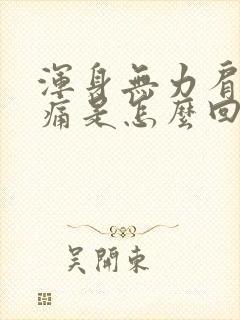 渾身無力肩
痛是怎麼回
吴開東